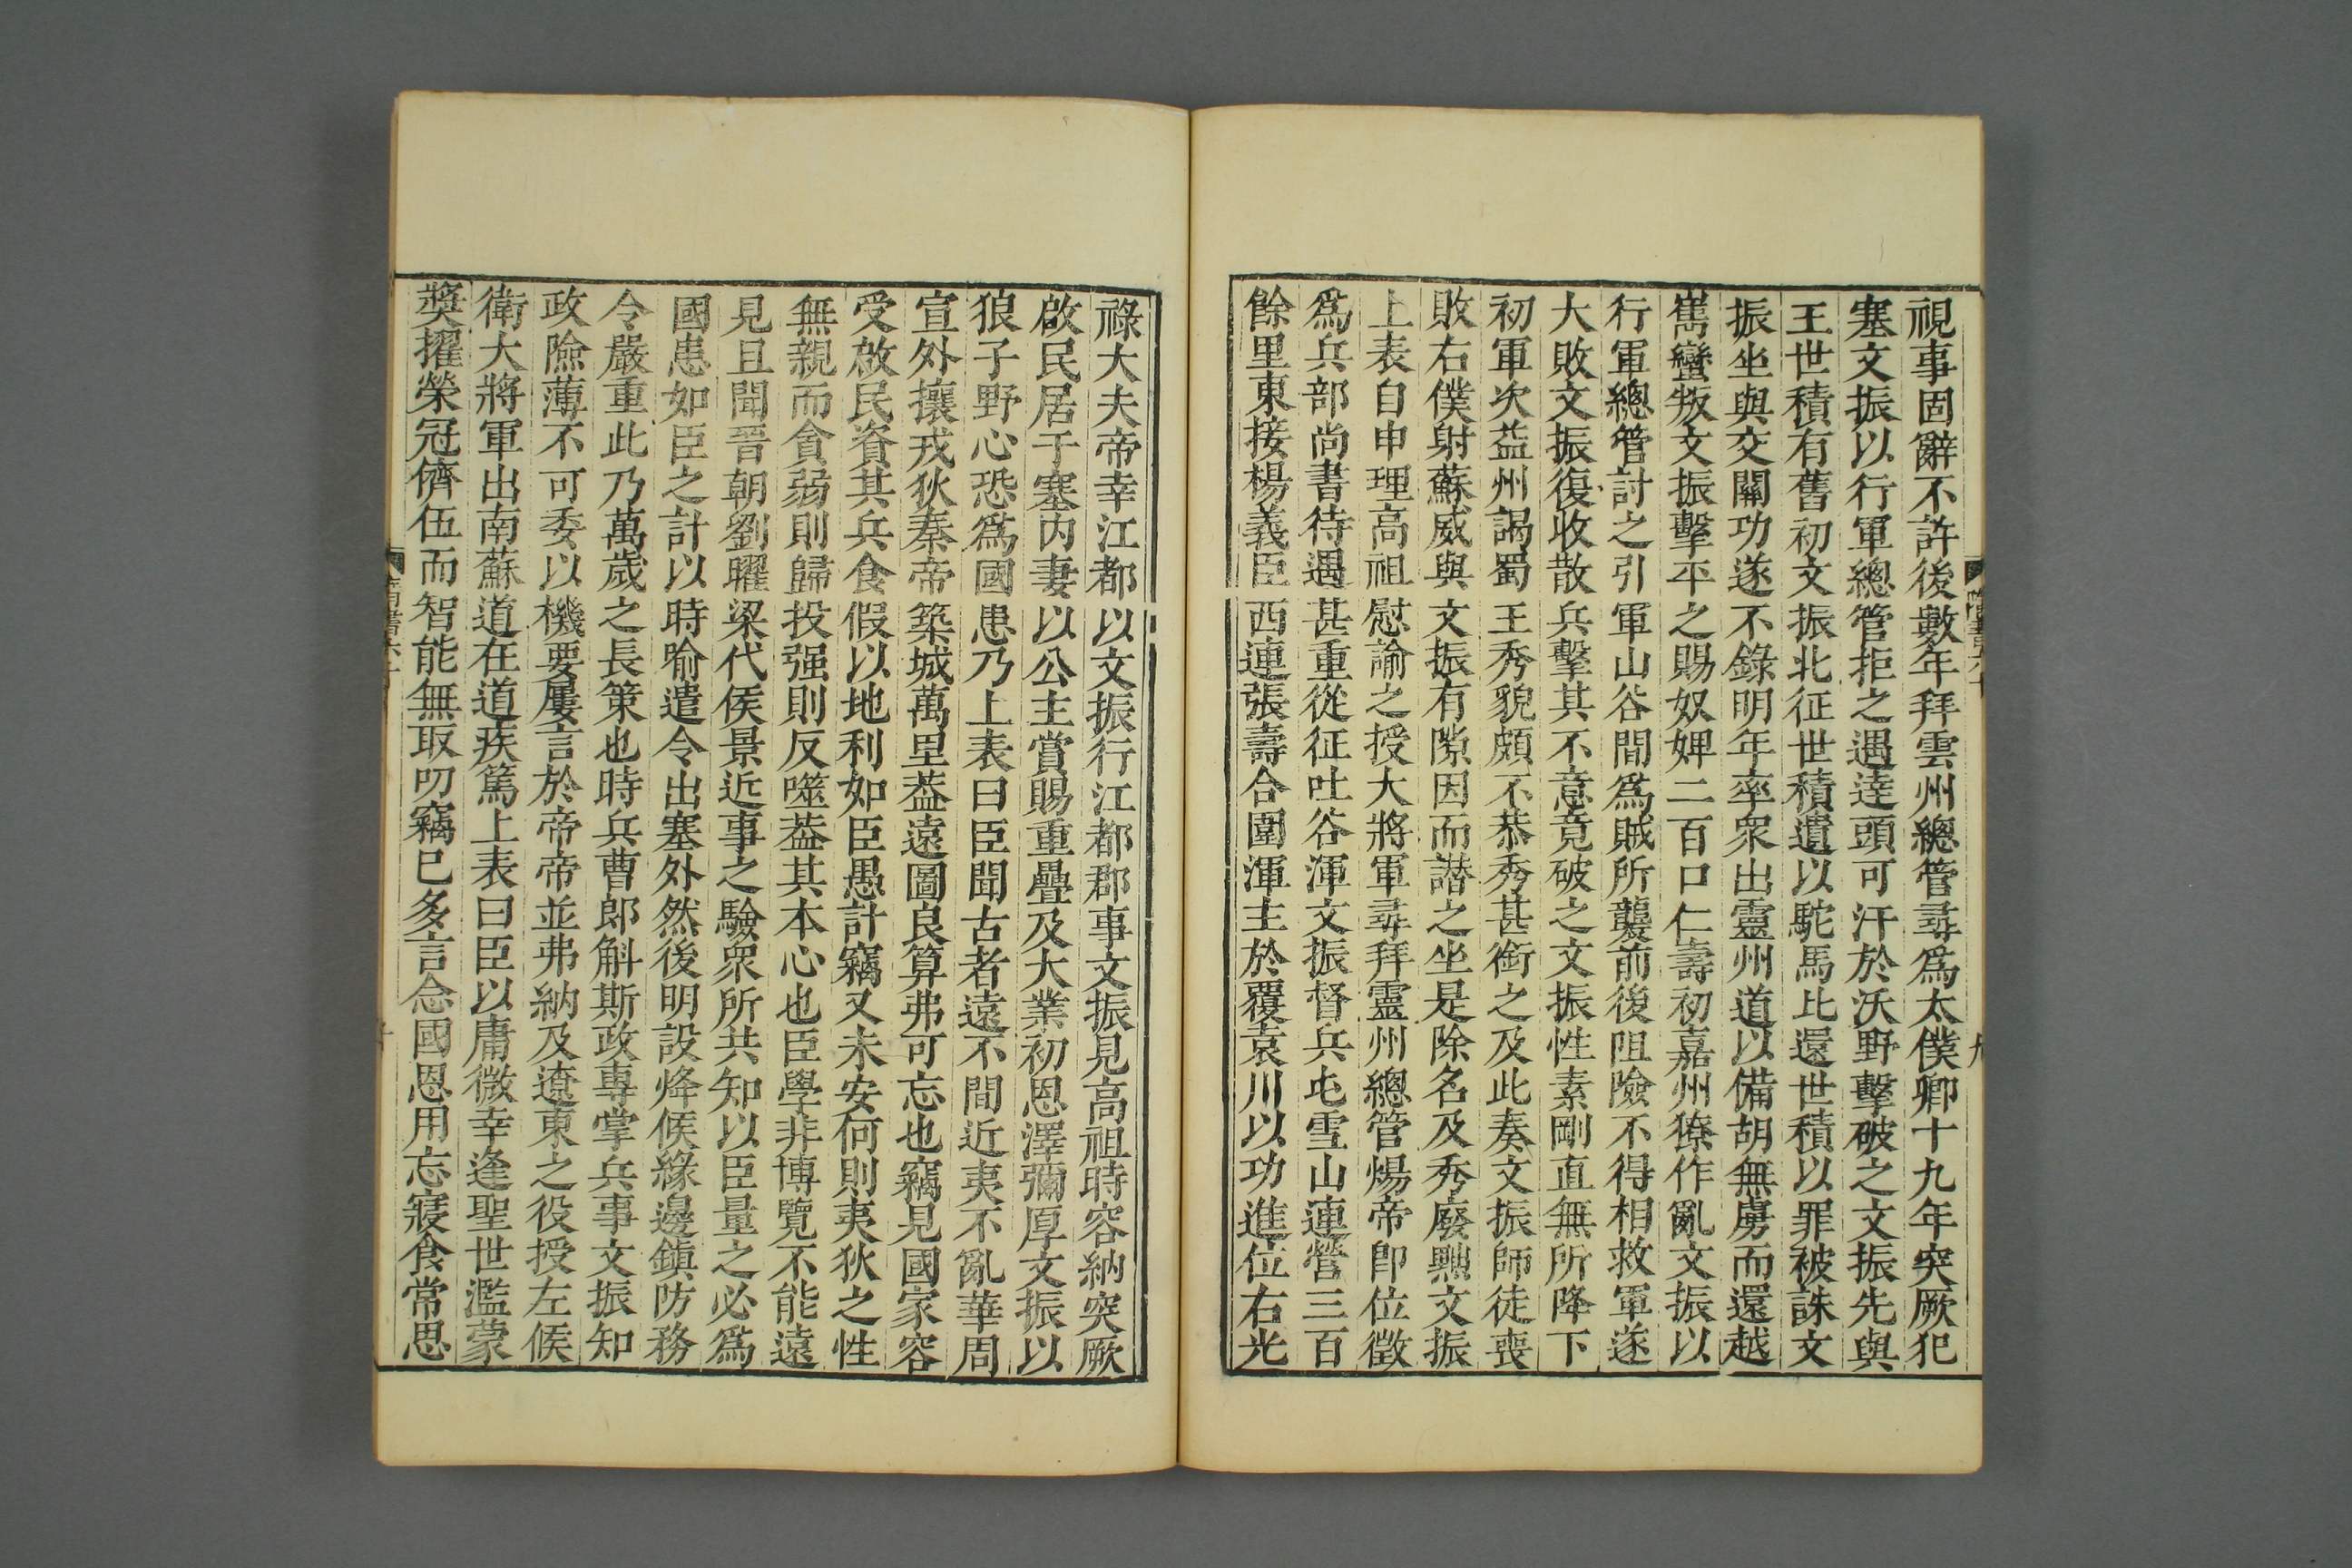 視事固辭不許後數年拜雲州總管尋爲太僕卿十九年突厥犯
塞文振以行軍總管拒之遇逹頭可汗於沃野擊破之文振先與
王世積有舊初文振北征世積遺以駝馬比還世積以罪被誅文
振坐與交關功遂不錄明年率衆出靈州道以備胡無虜而還越
嶲蠻叛文振擊平之賜奴婢二百口仁壽初嘉州獠作亂文振以
行軍總管討之引軍山谷間爲賊所襲前後阻險不得相救軍遂
大敗文振復收散兵擊其不意竟破之文振性素剛直無所降下
初軍次益州謁蜀王秀貌頗不恭秀甚銜之及此奏文振師徒喪
敗右僕射蘇威與文振有隙因而譖之坐是除名及秀廢黜文振
上表自申理高祖慰諭之授大將軍尋拜靈州總管煬帝卽位徵
爲兵部尚書待遇甚重從征吐谷渾文振督兵屯雪山連營三百
餘里東接楊義臣西連張壽合圍渾主於覆袁川以功進位右光
祿大夫帝幸江都以文振行江都郡事文振見高祖時容納突厥
啟民居于塞內妻以公主賞賜重疊及大業初恩澤彌厚文振以
狼子野心恐爲國患乃上表曰臣聞古者遠不間近夷不亂華周
宣外攘戎狄秦帝築城萬里葢遠圖良算弗可忘也竊見國家容
受啟民資其兵食假以地利如臣愚計竊又未安何則夷狄之性
無親而貪弱則歸投强則反噬葢其本心也臣學非博覽不能遠
見且聞晉朝劉曜梁代侯景近事之驗衆所共知以臣量之必爲
國患如臣之計以時喻遣令出塞外然後明設烽候緣邊鎭防務
令嚴重此乃萬歲之長策也時兵曹郎斛斯政專掌兵事文振知
政險薄不可委以機要屢言於帝帝並弗納及遼東之役授左候
衛大將軍出南蘇道在道疾篤上表曰臣以庸微幸逢聖世濫蒙
奬擢榮冠儕伍而智能無取叨竊已多言念國恩用忘寢食常思